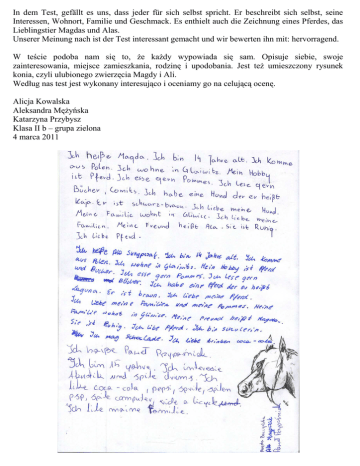 In dem Test, gefällt es uns, dass jeder für sich selbst spricht. Er beschreibt sich selbst, seine
Interessen, Wohnort, Familie und Geschmack. Es enthielt auch die Zeichnung eines Pferdes, das
Lieblingstier Magdas und Alas.
Unserer Meinung nach ist der Test interessant gemacht und wir bewerten ihn mit: hervorragend.
W teście podoba nam się to, że każdy wypowiada się sam. Opisuje siebie, swoje
zainteresowania, miejsce zamieszkania, rodzinę i upodobania. Jest też umieszczony rysunek
konia, czyli ulubionego zwierzęcia Magdy i Ali.
Według nas test jest wykonany interesująco i oceniamy go na celującą ocenę.
Alicja Kowalska
Aleksandra Mężyńska
Katarzyna Przybysz
Klasa II b – grupa zielona
4 marca 2011
Ich heiße Magda. Ich bin 14 Jahre alt. Ich komme
aus Polen. Ich wohne in Gliwitz. Mein Hobby
ist Pferd. Ich esse gern Pommes. Ich lese gern
Bücher, Comiks. Ich habe eine Hund der er heißt
Kaja. Er ist schwarz-braun. Ich liebe meine Hund.
Meine Familie wohnt in Ich liebe meine
Familien. Meine Freund heißt Ala. Sie ist Ruhig.
Ich liebe Pferd.
Ich heiße Ala Ich bin 14 Jahre alt. Ich komme
aus Polen. Ich wohne in Mein Hobby ist Pferd
und Bücher. Ich esse gern Pommes. Ich lese gern
Bücher. Ich habe eine Pferd der er heißt
Laguna. Er ist braun. Ich liebe meine Pferd.
Ich liebe meine Familien und meine Pommes. Meine
Familie wohnt in Meine Freund heißt Magda.
Sie ist Ruhig. Ich liebe Pferd. Ich bin
Ich mag Schokolade. Ich liebe trinken coca-cola
Ich heiße Paweł
Ich bin 15 yahre. Ich
und spile drums. Ich
like coca-cola, pepsi, sprite, spilen
psp, spile computer, ride a bicycle
Ich like meine Familie.